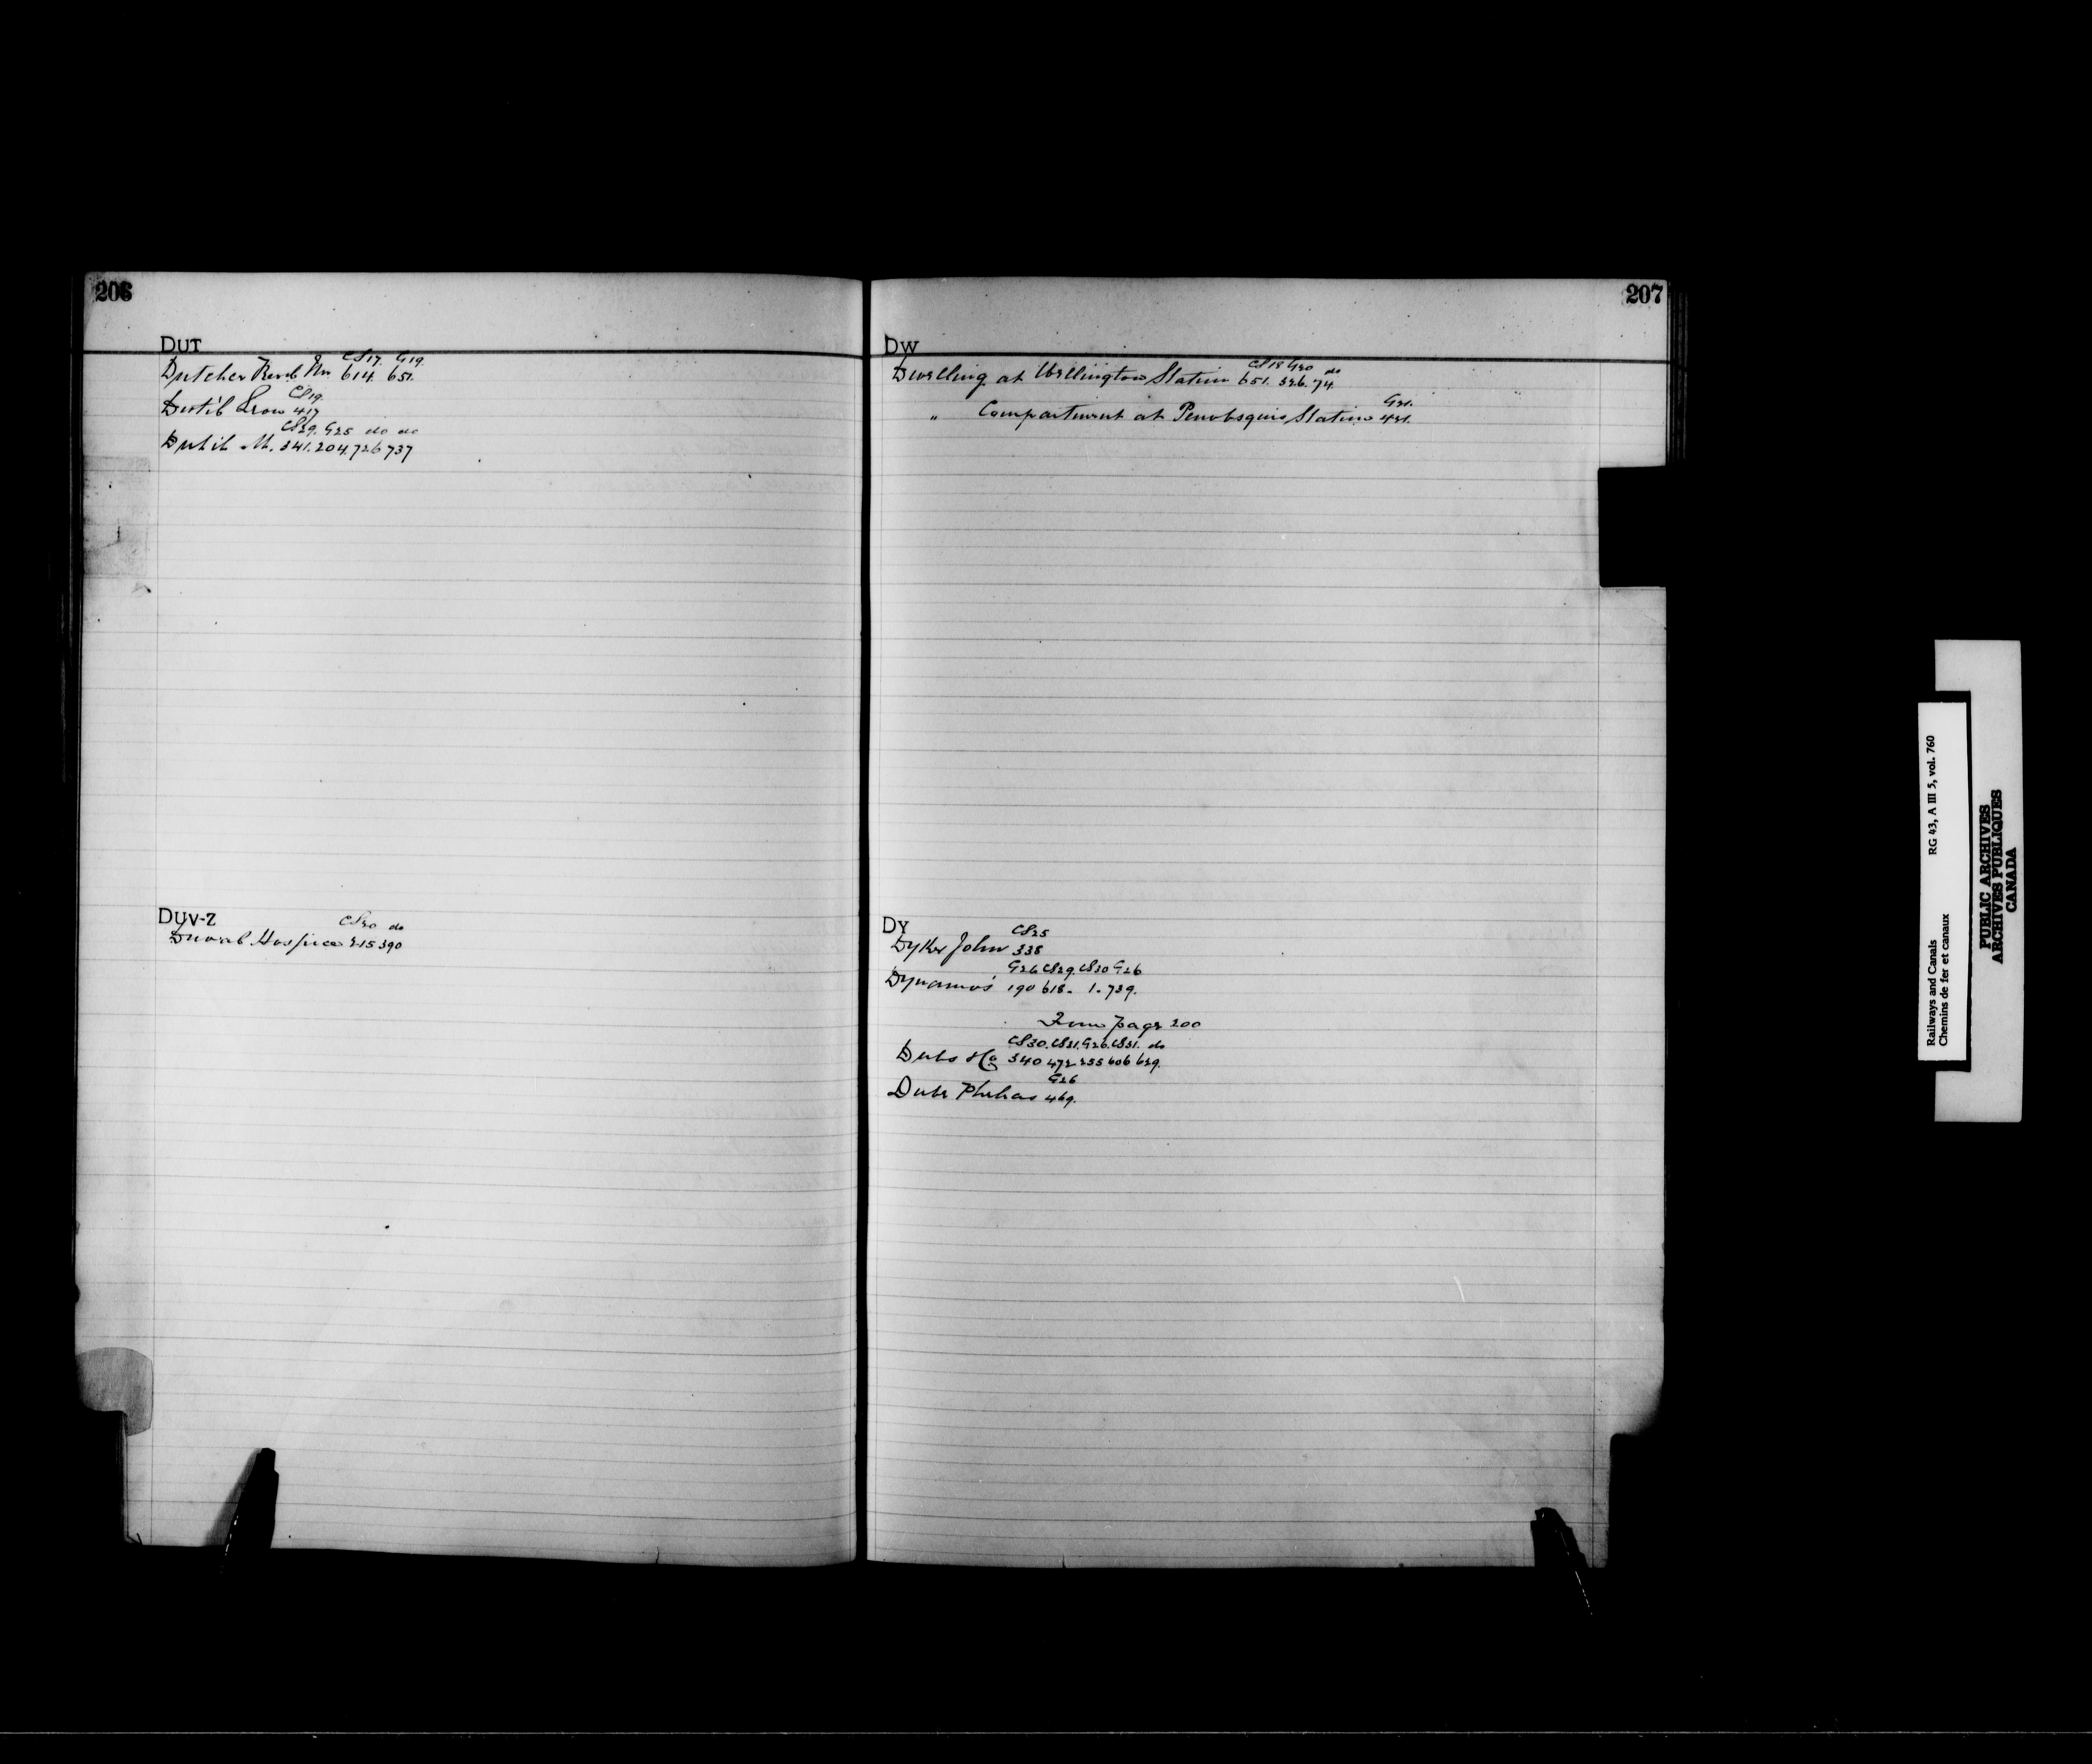 206
DUT
CS17. G19.
Dutcher Revd Mr 614. 651.
CS19.
Dutil Leon 417
CS29. G25 do do
Dutil M. 341. 204. 726 737
DUV-Z
CS30 do
Duval Hospice 215 390
207
DW
CS18 G20 do
Dwelling at Wellington Station 651. 326. 74.
G21.
" Compartment at Penobsquis Station 421.
DY
CS25
Dyker John 338
G26 CS29. CS30 G26
Dynamos 190 618. 1. 739.
From page 200
CS30. CS31. G26. CS31. do
Dubs & Co 340 472 255 606 629.
G26
Dube 469.
Railways and Canals RG 43, A III 5, vol. 760
Chemins de fer et canaux
PUBLIC ARCHIVES
ARCHIVES PUBLIQUES
CANADA